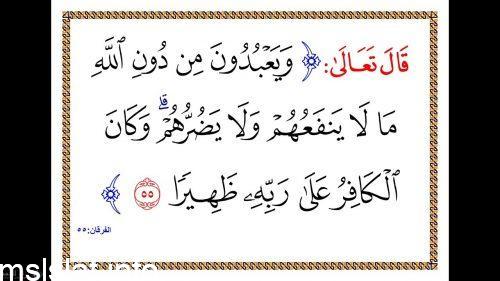 قَالَ تَعَالَىٰ: ﴿ وَيَعْبُدُونَ مِن دُونِ ٱللَّهِ
مَا لَا يَنفَعُهُمْ وَلَا يَضُرُّهُمْ ۗ وَكَانَ
ٱلْكَافِرُ عَلَىٰ رَبِّهِۦ ظَهِيرًا ٥٥ ﴾
الفرقان: ٥٥